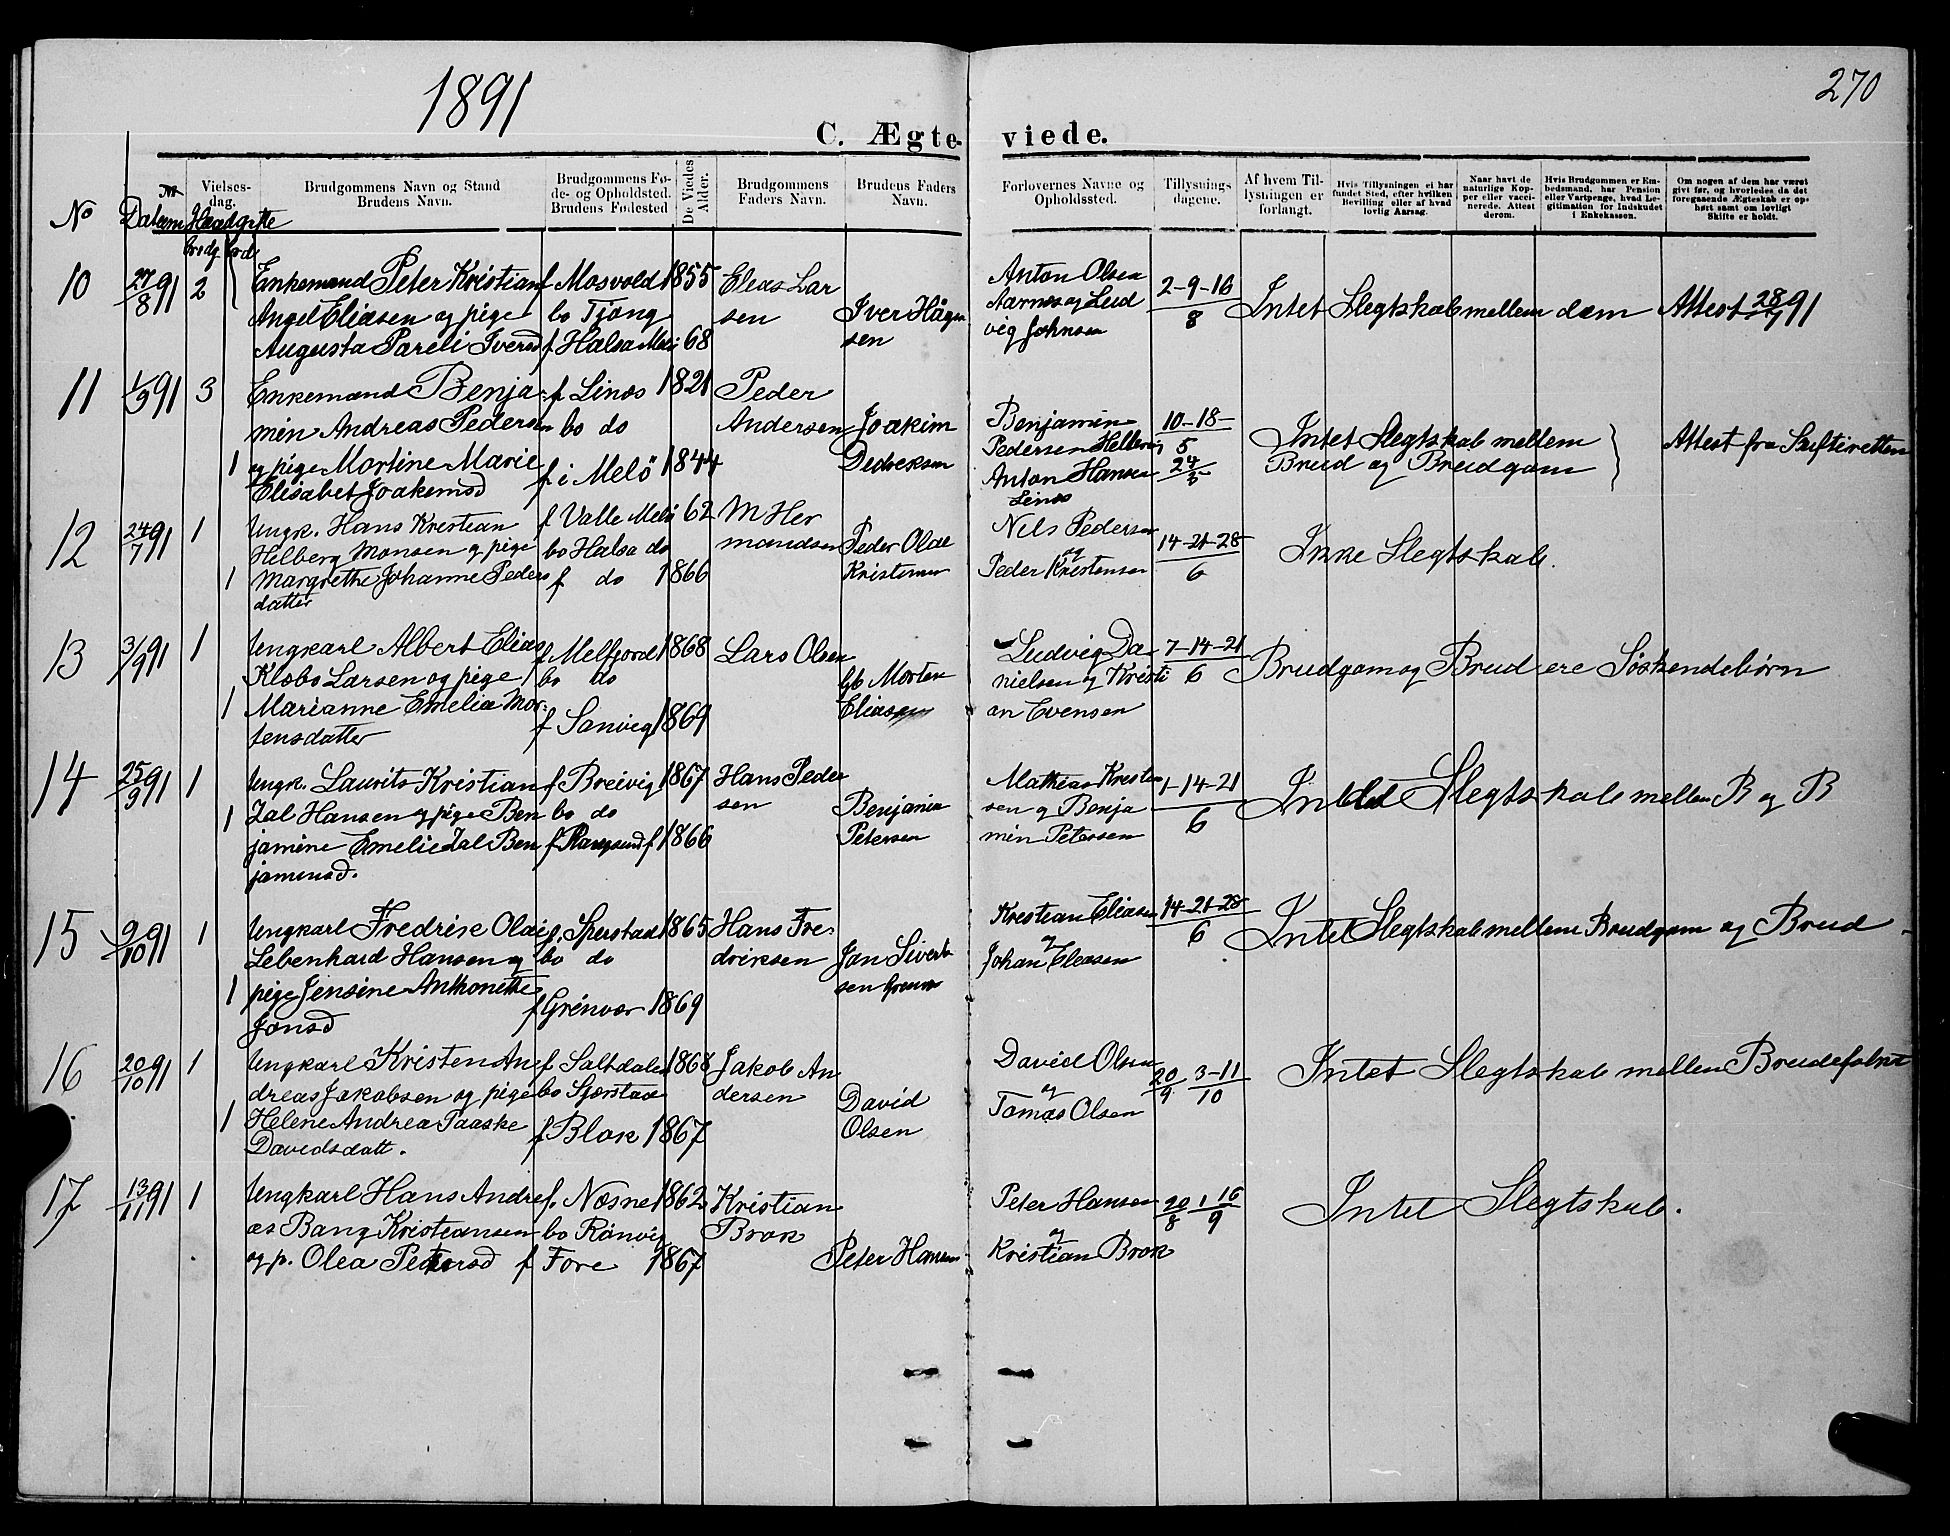 1891
270
C. Ægte-viede.
No
Datum
Hvadgifte
brudg brud
Vielses-dag.
Brudgommens Navn og Stand
Brudens Navn.
Brudgommens Fø-
de- og Opholdsted.
Brudens Fødested
De Viedes
Alder.
Brudgommens
Faders Navn.
Brudens Faders
Navn.
Forlovernes Navne og
Opholdssted.
Tillysnings-
dagene.
Af hvem Til-
lysningen er
forlangt.
Hvis Tillysningen ei har
fundet Sted, efter hvilken
Bevilling eller af hvad
lovlig Aarsag.
Naar havt de
naturlige Kop-
per eller vacci-
nerede. Attest
derom.
Hvis Brudgommen er Em-
bedsmand, har Pension
eller Vartpenge, hvad Le-
gitimation for Indskudet
i Enkekassen.
Om nogen af dem har været
gift før, og hvorledes da det
foregaaende Ægteskab er op-
hørt samt om lovligt
Skifte er holdt.
10 27/8 91 2
Enkemand Peter Kristian
Angel Eliasen og pige
Augusta Pareli Iversd
f Mosvold 1855
bo Tjong
f Halsa Melö 68
Elias Lar
sen
Iver Hågen
sen
Anton Olsen
Aarnes og Lud
vig Johnsen
2-9-16/8
Intet Slegtskab mellem dem
Attest 28/7 91
11 1/9 91 3
Enkemand Benja-
min Andreas Pedersen
1 og pige Martine Marie
Elisabet Joakimsd
f Linos 1821
bo do
f i Melö 1844
Peder
Andersen
Joakim
Dedreksen
Benjamin
Pedersen Helberg
Anton Hansen
Linos
10-18-/5
24/5
Intet Slegtskab mellem
Brud og Brudgom
Attest fra Skifteretten
12 24/7 91 1
Ungk. Hans Kristian
Helberg Monsen og pige
1 Margrethe Johanne Peders
datter
f Valle Melö 62
bo Halsa do
f do 1866
M Her
mandsen
Peder Olai
Kristensen
Nils Pedersen
og
Peder Kristensen
14-21-28/6
Ikke Slegtskab.
13 3/9 91 1
Ungkarl Albert Elias
Klobo Larsen og pige
1 Marianne Emelia Mor-
tensdatter
f Melfjord 1868
bo do
f Sanvig 1869
Lars Olsen
Gb Morten
Eliasen
Ludvig Da
nielsen og Kristi
an Evensen
7-14-21/6
Brudgom og Brud ere Söskendebörn
14 25/9 91 1
Ungk. Laurits Kristian
Zal Hansen og pige Ben
1 jamine Emelie Zal Ben
jaminsd.
f Breivig 1867
bo do
f Rangsundf 1866
Hans Peder
sen
Benjamin
Petersen
Mathias Kristen
sen og Benja
min Petersen
1-14-21/6
Intet Slegtskab mellem B og B
15 9/10 91 1
Ungkarl Fredrik Olai
Lebenhard Hansen og
1 pige Jensine Anthonette
Jonsd
f. Sperstad 1865
bo do
f Grönvor 1869
Hans Fre-
driksen
Jon Sivert
sen
Krestian Eliasen
og
Johan Eleasen
14-21-28/6
Intet Slegtskab mellem Brudgom og Brud
16 20/10 91 1
Ungkarl Kristen An
dreas Jakobsen og pige
1 Helene Andrea Paaske
Davidsdatt.
f Saltdalen 1868
bo Sjorstad
f Blok 1867
Jakob An
dersen
David
Olsen
David Olsen
og
Tomas Olsen
20/9 3-11/10
Intet Slegtskab mellem Brudefolket
17 13/11 91 1
Ungkarl Hans Andre
as Bang Kristiansen
og p. Olea Petersd
f. Nosne 1862
bo Rönvig
f Fore 1867
Kristian
Brok
Peter Hansen
Peter Hansen
og
Kristian Brok
20/8 1 16/9
Intet Slegtskab.